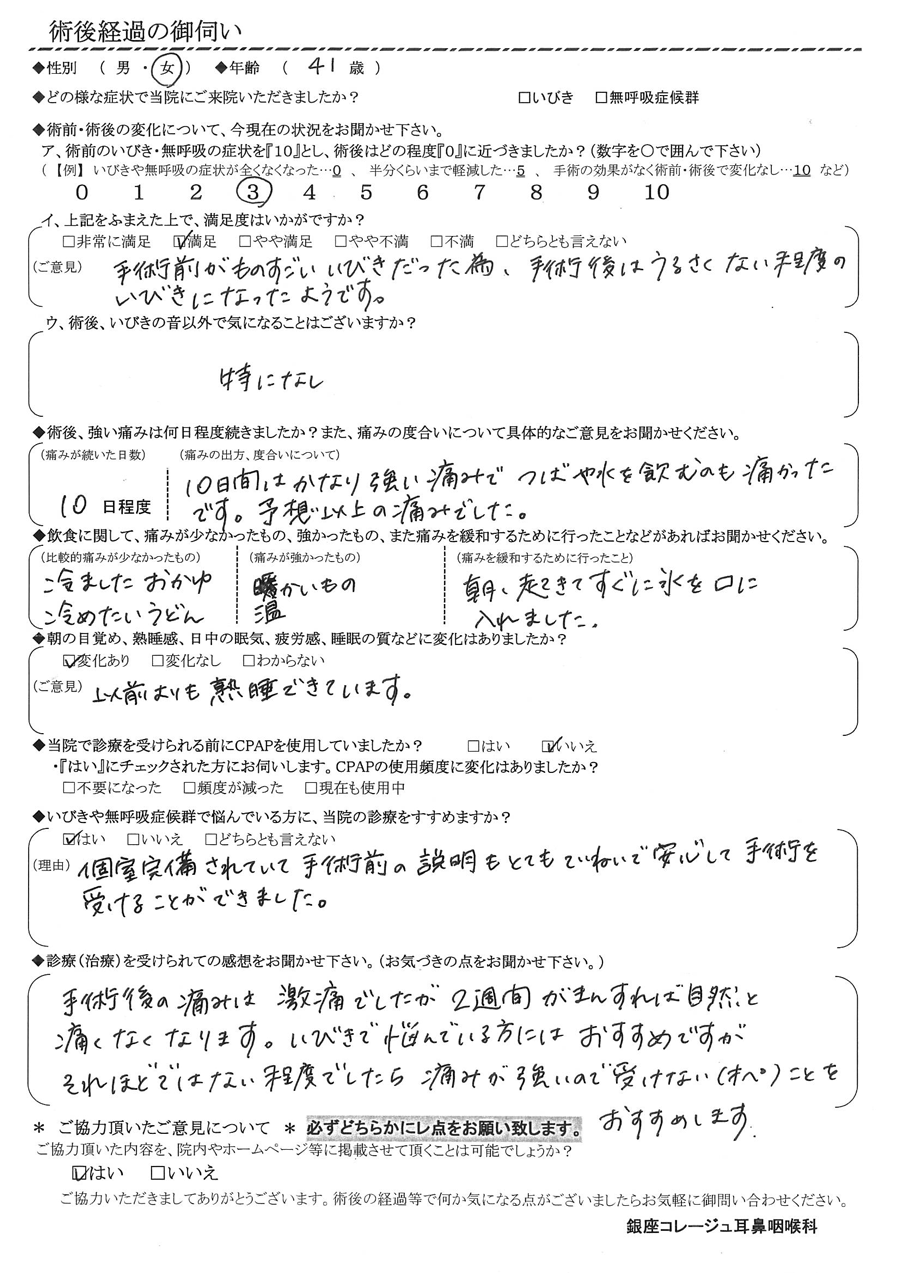 術後経過の御伺い
◆性別 ( 男 ・ 女 ) ◆年齢 ( 41 歳 )
◆どの様な症状で当院にご来院いただきましたか？ □いびき □無呼吸症候群
◆術前・術後の変化について、今現在の状況をお聞かせ下さい。
ア、術前のいびき・無呼吸の症状を『10』とし、術後はどの程度『0』に近づきましたか？(数字を○で囲んで下さい)
(【例】いびきや無呼吸の症状が全くなくなった…0 、 半分くらいまで軽減した…5 、 手術の効果がなく術前・術後で変化なし…10 など)
0 1 2 3 4 5 6 7 8 9 10
イ、上記をふまえた上で、満足度はいかがですか？
□非常に満足 ☑満足 □やや満足 □やや不満 □不満 □どちらとも言えない
(ご意見) 手術前がものすごいいびきだった為、手術後はうるさくない程度の
いびきになったようです。
ウ、術後、いびきの音以外で気になることはございますか？
特になし
◆術後、強い痛みは何日程度続きましたか？また、痛みの度合いについて具体的なご意見をお聞かせください。
(痛みが続いた日数) (痛みの出方、度合いについて)
10 日程度 10日間はかなり強い痛みで つばや水を飲むのも痛かった
です。予想以上の痛みでした。
◆飲食に関して、痛みが少なかったもの、強かったもの、また痛みを緩和するために行ったことなどがあればお聞かせください。
(比較的痛みが少なかったもの) (痛みが強かったもの) (痛みを緩和するために行ったこと)
冷ました おかゆ かいもの 朝、起きてすぐに氷を口に
冷めたいうどん 温 入れました。
◆朝の目覚め、熟睡感、日中の眠気、疲労感、睡眠の質などに変化はありましたか？
☑変化あり □変化なし □わからない
(ご意見) 以前よりも熟睡できています。
◆当院で診療を受けられる前にCPAPを使用していましたか？ □はい ☑いいえ
・『はい』にチェックされた方にお伺いします。CPAPの使用頻度に変化はありましたか？
□不要になった □頻度が減った □現在も使用中
◆いびきや無呼吸症候群で悩んでいる方に、当院の診療をすすめますか？
☑はい □いいえ □どちらとも言えない
(理由) 個室完備されていて 手術前の説明もとてもていねいで安心して手術を
受けることができました。
◆診療(治療)を受けられての感想をお聞かせ下さい。(お気づきの点をお聞かせ下さい。)
手術後の痛みは 激痛でしたが 2週間がまんすれば自然と
痛くなくなります。いびきで悩んでいる方にはおすすめですが
それほどではない程度でしたら 痛みが強いので受けない(オペ)ことを
おすすめします.
＊ ご協力頂いたご意見について ＊ 必ずどちらかにレ点をお願い致します。
ご協力頂いた内容を、院内やホームページ等に掲載させて頂くことは可能でしょうか？
☑はい □いいえ
ご協力いただきましてありがとうございます。術後の経過等で何か気になる点がございましたらお気軽に御問い合わせください。
銀座コレージュ耳鼻咽喉科